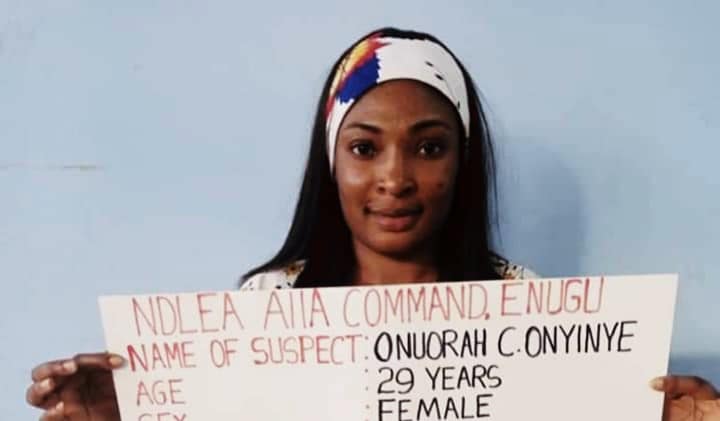 NDLEA AIIA COMMAND, ENUGU
NAME OF SUSPECT: ONUORAH C. ONYINYE
AGE : 29 YEARS
SEX : FEMALE